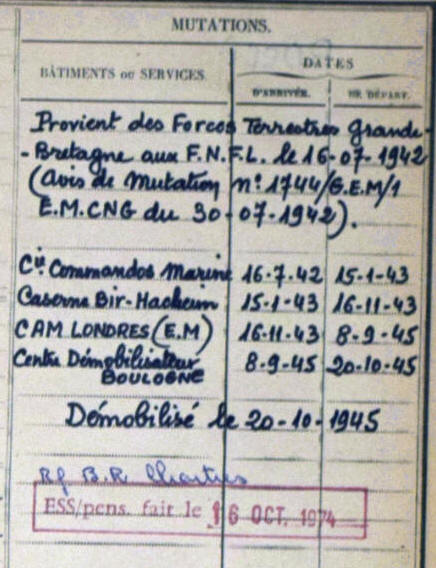 MUTATIONS.
BÂTIMENTS ou SERVICES
DATES
D'ARRIVÉE.
DE DÉPART.
Provient des Forces Terrestres Grande-
- Bretagne aux F.N.F.L. le 16-07-1942
(Avis de Mutation n° 1744/G.E.M/1
E.M.CNG du 30-07-1942).
Cie Commandos Marine 16-7-42 15-1-43
Caserne Bir-Hacheim 15-1-43 16-11-43
CAM LONDRES (E.M) 16-11-43 8-9-45
Centre Démobilisateur 8-9-45 20-10-45
BOULOGNE
Démobilisé le 20-10-1945
B.R. Chartres
ESS/pens. fait le 16 OCT. 1974